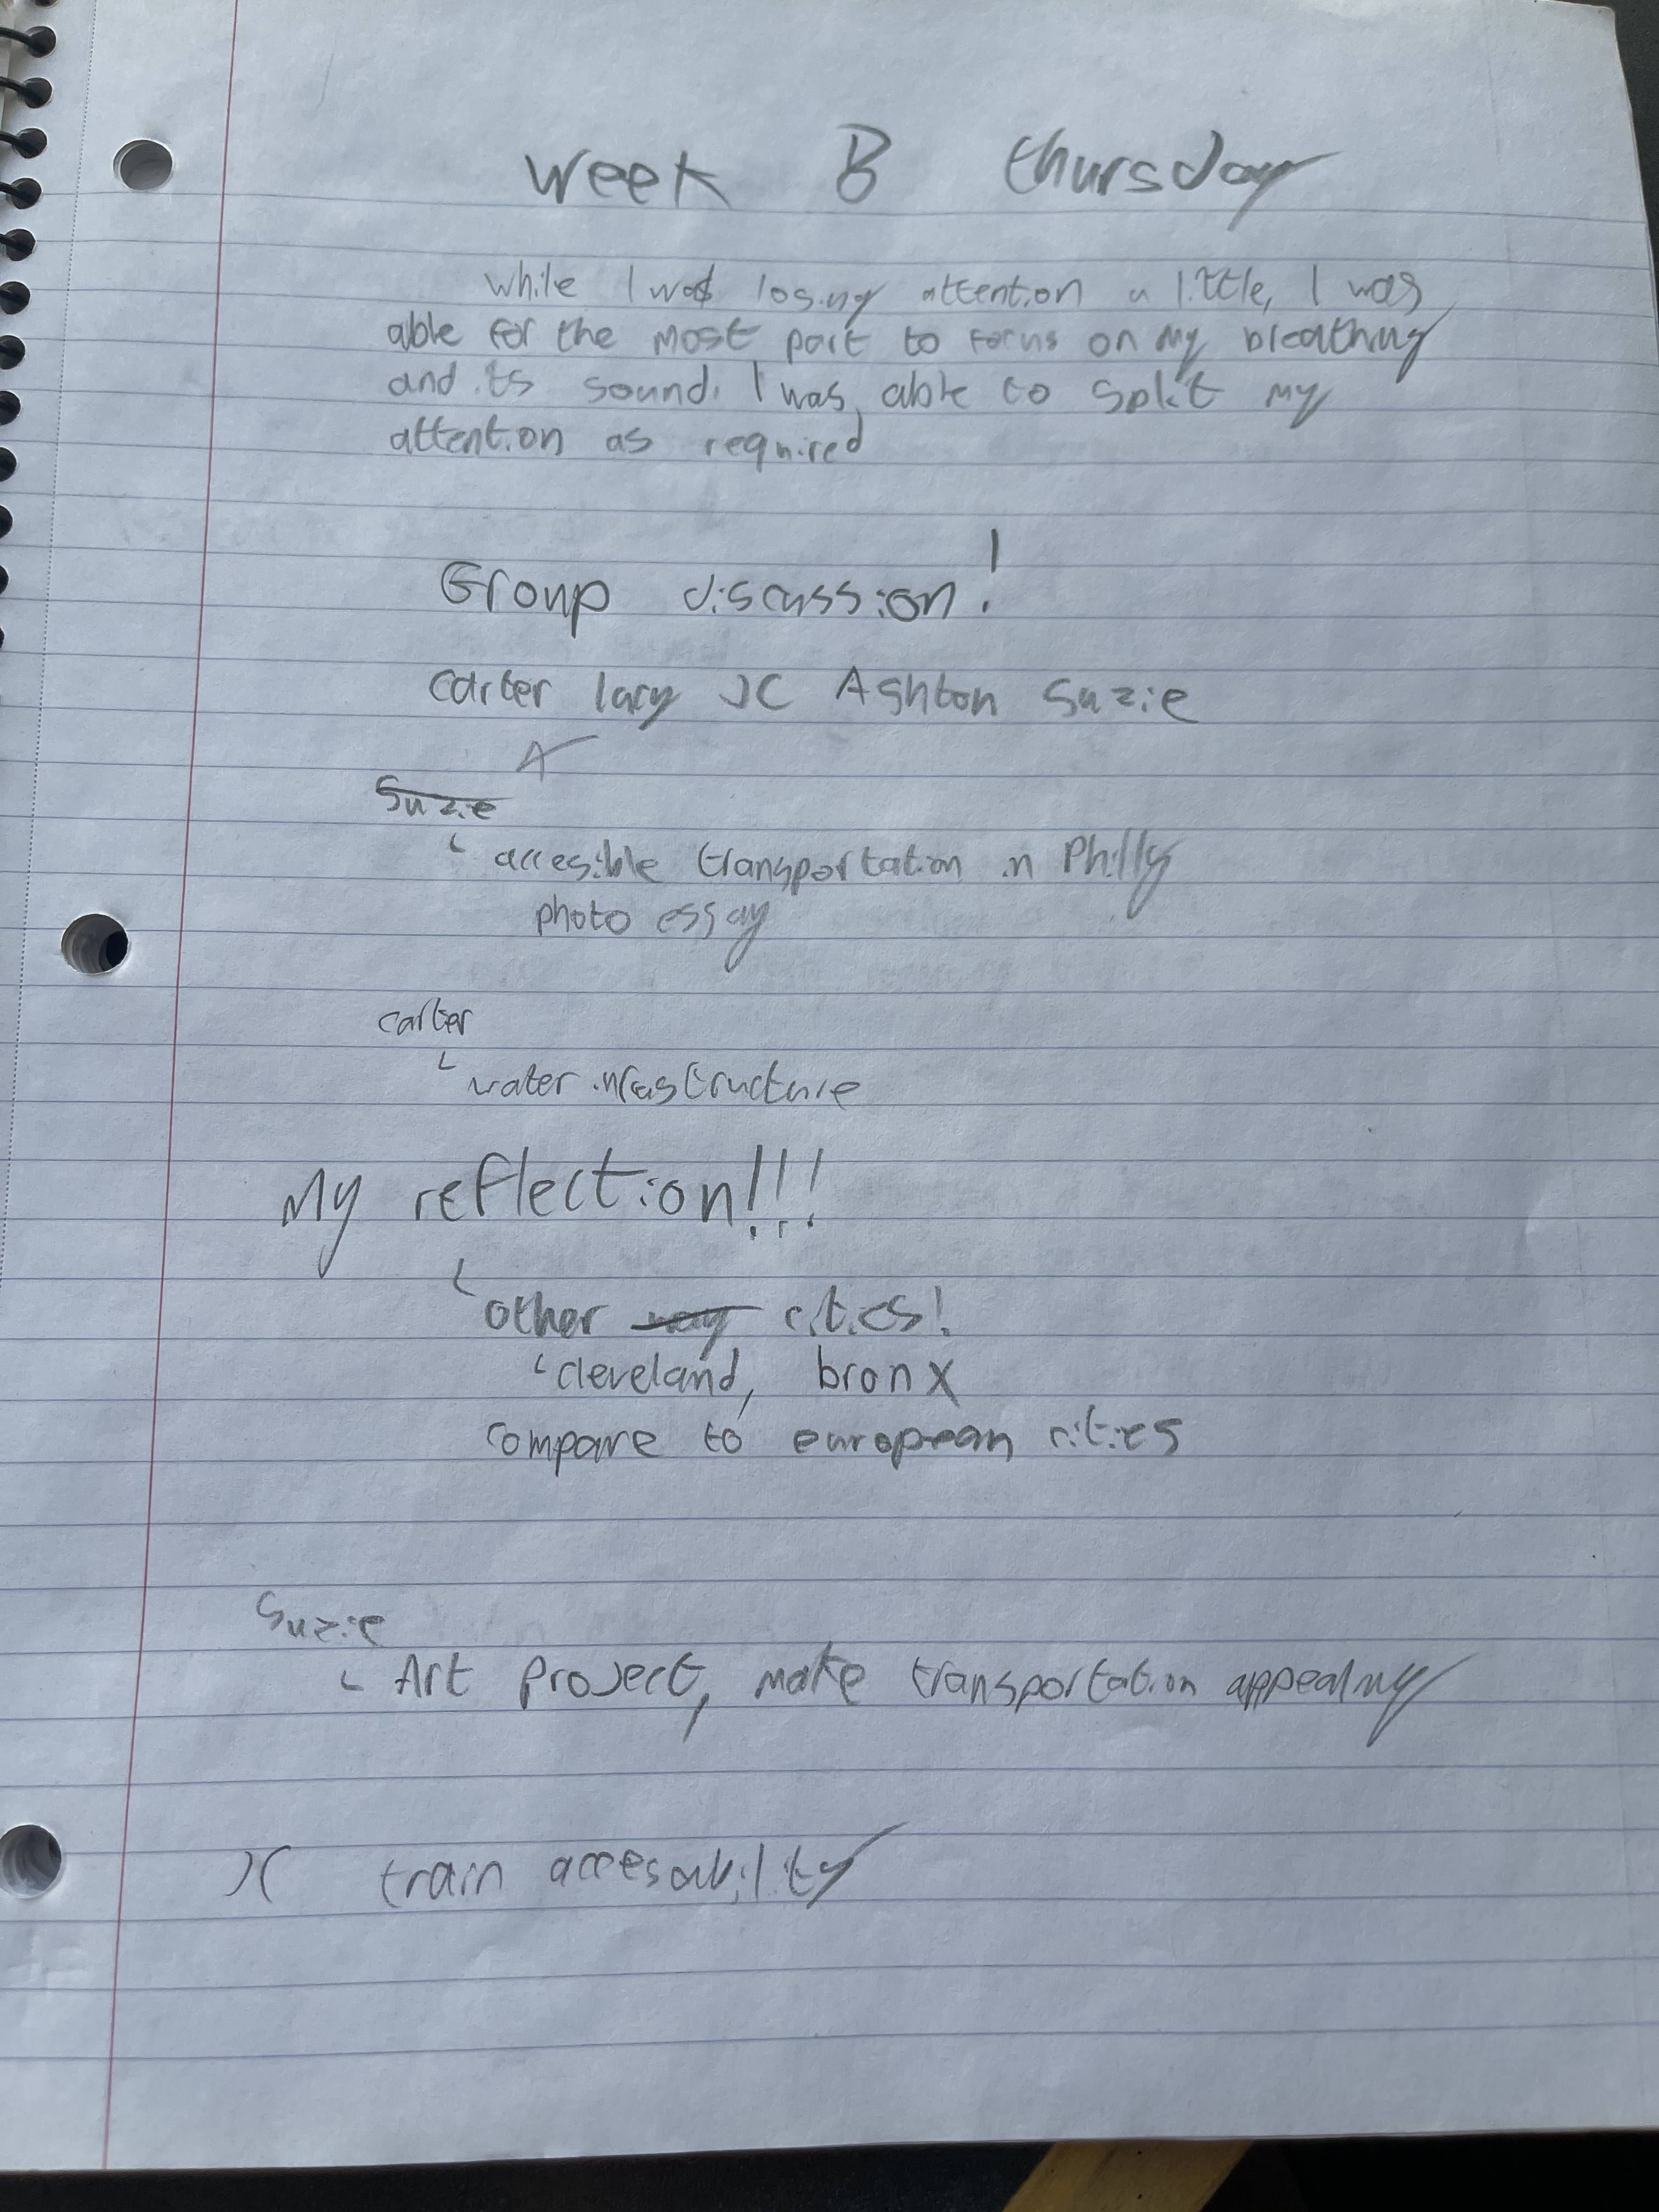 week B thursday
while I was losing attention a little, I was
able for the most part to focus on my breathing
and its sound. I was able to split my
attention as required
Group discussion!
carter lacy JC Ashton Suzie
A
Suzie
accesible transportation in Philly
photo essay
carter
water infastructure
My reflection!!!
other way cities!
cleveland, bronx
compare to european cities
Suzie
Art Project, make transportation appealing
JC train accesability